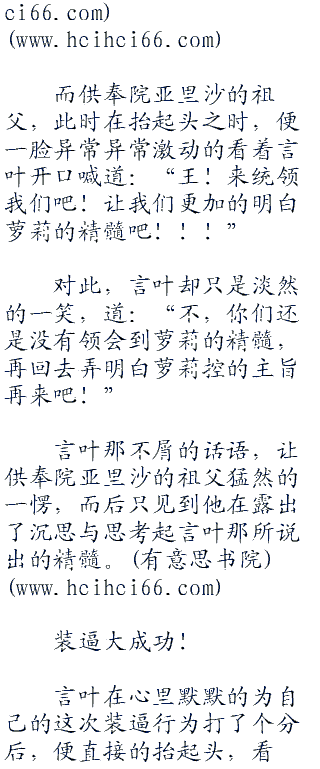 ci66.com)
(www.hcihci66.com)
而供奉院亚里沙的祖
父，此时在抬起头之时，便
一脸异常异常激动的看着言
叶开口喊道：“王！来统领
我们吧！让我们更加的明白
萝莉的精髓吧！！！”
对此，言叶却只是淡然
的一笑，道：“不，你们还
是没有领会到萝莉的精髓，
再回去弄明白萝莉控的主旨
再来吧！”
言叶那不屑的话语，让
供奉院亚里沙的祖父猛然的
一愣，而后只见到他在露出
了沉思与思考起言叶那所说
出的精髓。(有意思书院)
(www.hcihci66.com)
装逼大成功！
言叶在心里默默的为自
己的这次装逼行为打了个分
后，便直接的抬起头，看